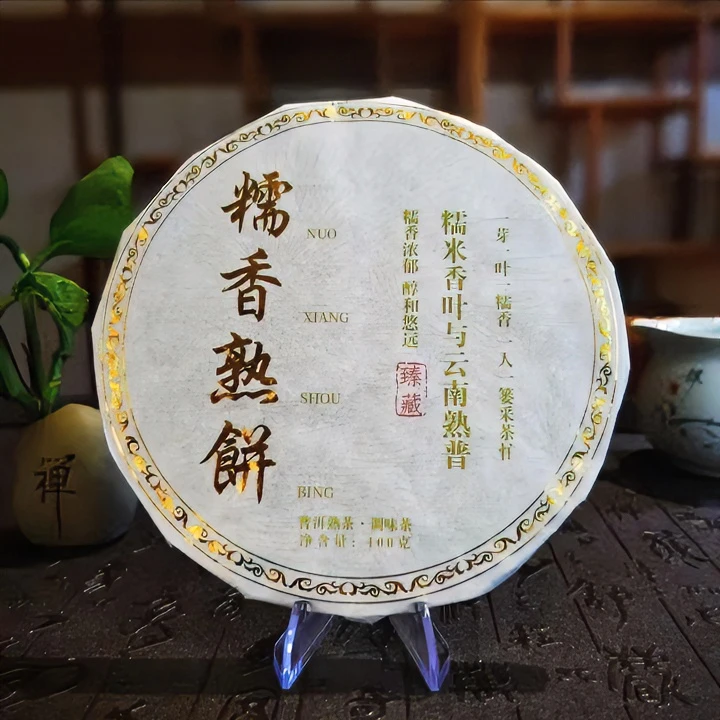 糯香熟餅
NUO
XIANG
SHOU
BING
糯香浓郁 醇和悠远
糯米香叶与云南熟普
一芽一叶一糯香 一人一篓采茶忙
臻藏
普洱熟茶·调味茶
净含量：400克
禅